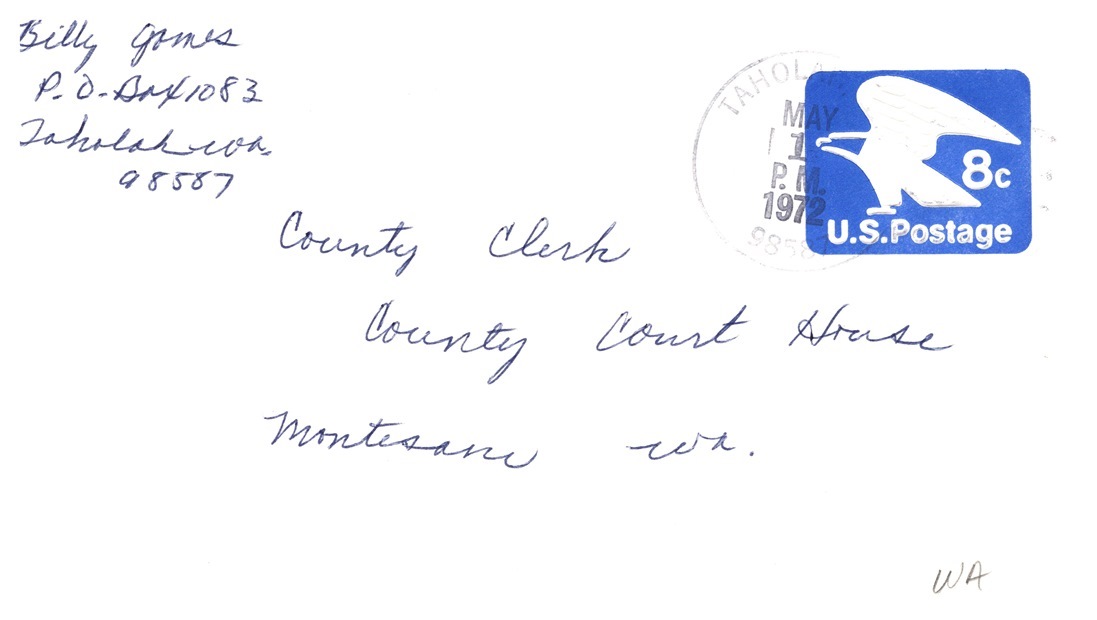 Billy Gomes
P.O. Box 1083
Taholah wa.
98587
TAHOLA
MAY
1
P.M.
1972
9858
8c
U.S. Postage
County Clerk
County Court House
Montesano wa.
WA